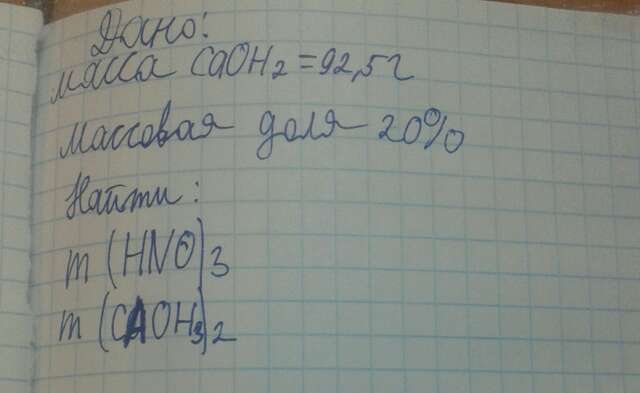 Дано:
масса CaOH2 = 92,5г
Массовая доля 20%
Найти:
m (HNO)3
m (CAOH3)2